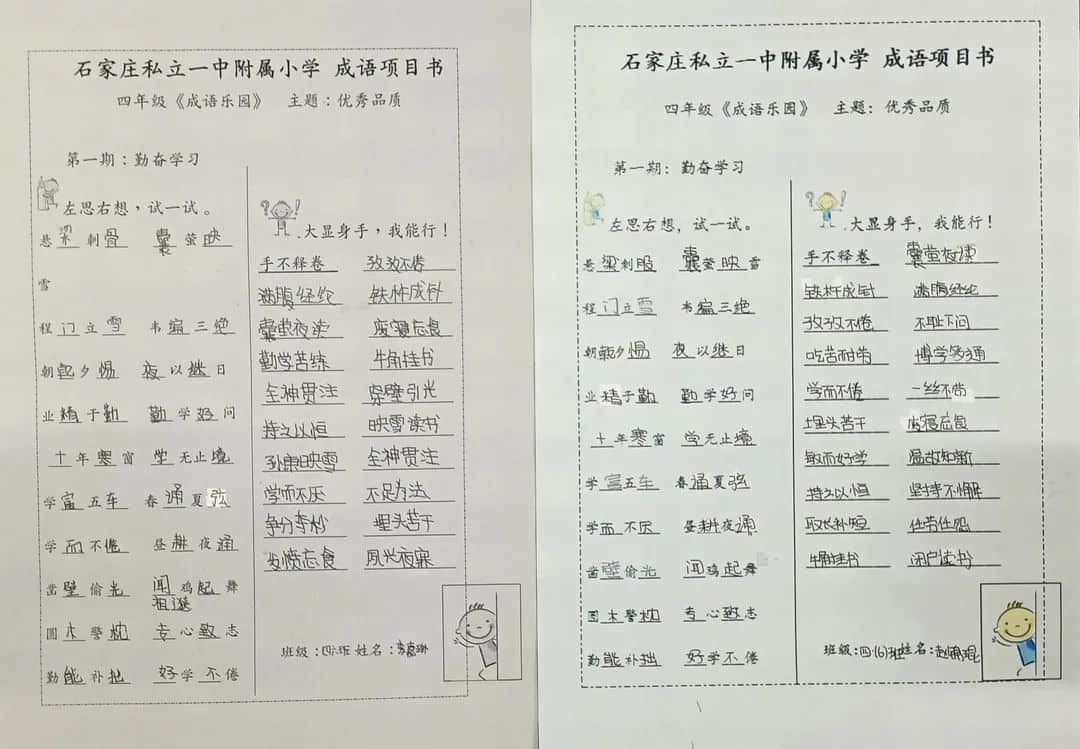 石家庄私立一中附属小学 成语项目书
四年级《成语乐园》 主题：优秀品质
第一期：勤奋学习
左思右想，试一试。
悬梁刺骨 囊萤映
雪
程门立雪 韦编三绝
朝乾夕惕 夜以继日
业精于勤 勤学好问
十年寒窗 学无止境
学富五车 春诵夏弦
学而不倦 昼耕夜诵
凿壁偷光 闻鸡起舞
祖逖
圆木警枕 专心致志
勤能补拙 好学不倦
大显身手，我能行！
手不释卷 孜孜不倦
满腹经纶 铁杵成针
囊萤夜读 废寝忘食
勤学苦练 牛角挂书
全神贯注 穿壁引光
持之以恒 映雪读书
孙康映雪 全神贯注
学而不厌 不足为法
争分夺秒 埋头苦干
发愤忘食 夙兴夜寐
班级：四六班 姓名：
石家庄私立一中附属小学 成语项目书
四年级《成语乐园》 主题：优秀品质
第一期：勤奋学习
左思右想，试一试。
悬梁刺股 囊萤映雪
程门立雪 韦编三绝
朝乾夕惕 夜以继日
业精于勤 勤学好问
十年寒窗 学无止境
学富五车 春诵夏弦
学而不厌 昼耕夜诵
凿壁偷光 闻鸡起舞
圆木警枕 专心致志
勤能补拙 好学不倦
大显身手，我能行！
手不释卷 囊萤夜读
铁杵成针 满腹经纶
孜孜不倦 不耻下问
吃苦耐劳 博学多通
学而不倦 一丝不苟
埋头苦干 废寝忘食
敏而好学 温故知新
持之以恒 坚持不懈
取长补短 任劳任怨
牛角挂书 闭户读书
班级：四(6)班 姓名：